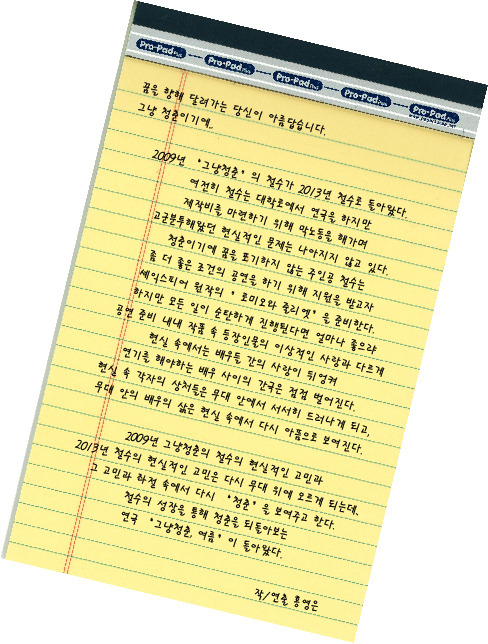 Pro-Pad Plus Pro-Pad Plus Pro-Pad Plus Pro-Pad Plus Pro-Pad Plus
꿈을 향해 달려가는 당신이 아름답습니다.
그냥 청춘이기에..
2009년 "그냥청춘"의 철수가 2013년 철수로 돌아왔다.
여전히 철수는 대학로에서 연극을 하지만
제작비를 마련하기 위해 막노동을 해가며
고군분투해왔던 현실적인 문제는 나아지지 않고 있다.
청춘이기에 꿈을 포기하지 않는 주인공 철수는
좀 더 좋은 조건의 공연을 하기 위해 지원을 받고자
셰익스피어 원작의 "로미오와 줄리엣"을 준비한다.
하지만 모든 일이 순탄하게 진행된다면 얼마나 좋으랴
공연 준비 내내 작품 속 등장인물의 이상적인 사랑과 다르게
현실 속에서는 배우들 간의 사랑이 뒤엉켜
연기를 해야하는 배우 사이의 간극은 점점 벌어진다.
현실 속 각자의 상처들은 무대 안에서 서서히 드러나게 되고,
무대 안의 배우의 삶은 현실 속에서 다시 아픔으로 보여진다.
2009년 그냥청춘의 철수의 현실적인 고민과
2013년 철수의 현실적인 고민은 다시 무대 위에 오르게 되는데,
그 고민과 좌절 속에서 다시 "청춘"을 보여주고 한다.
철수의 성장을 통해 청춘을 되돌아보는
연극 "그냥청춘, 여름"이 돌아왔다.
작/연출 홍영은